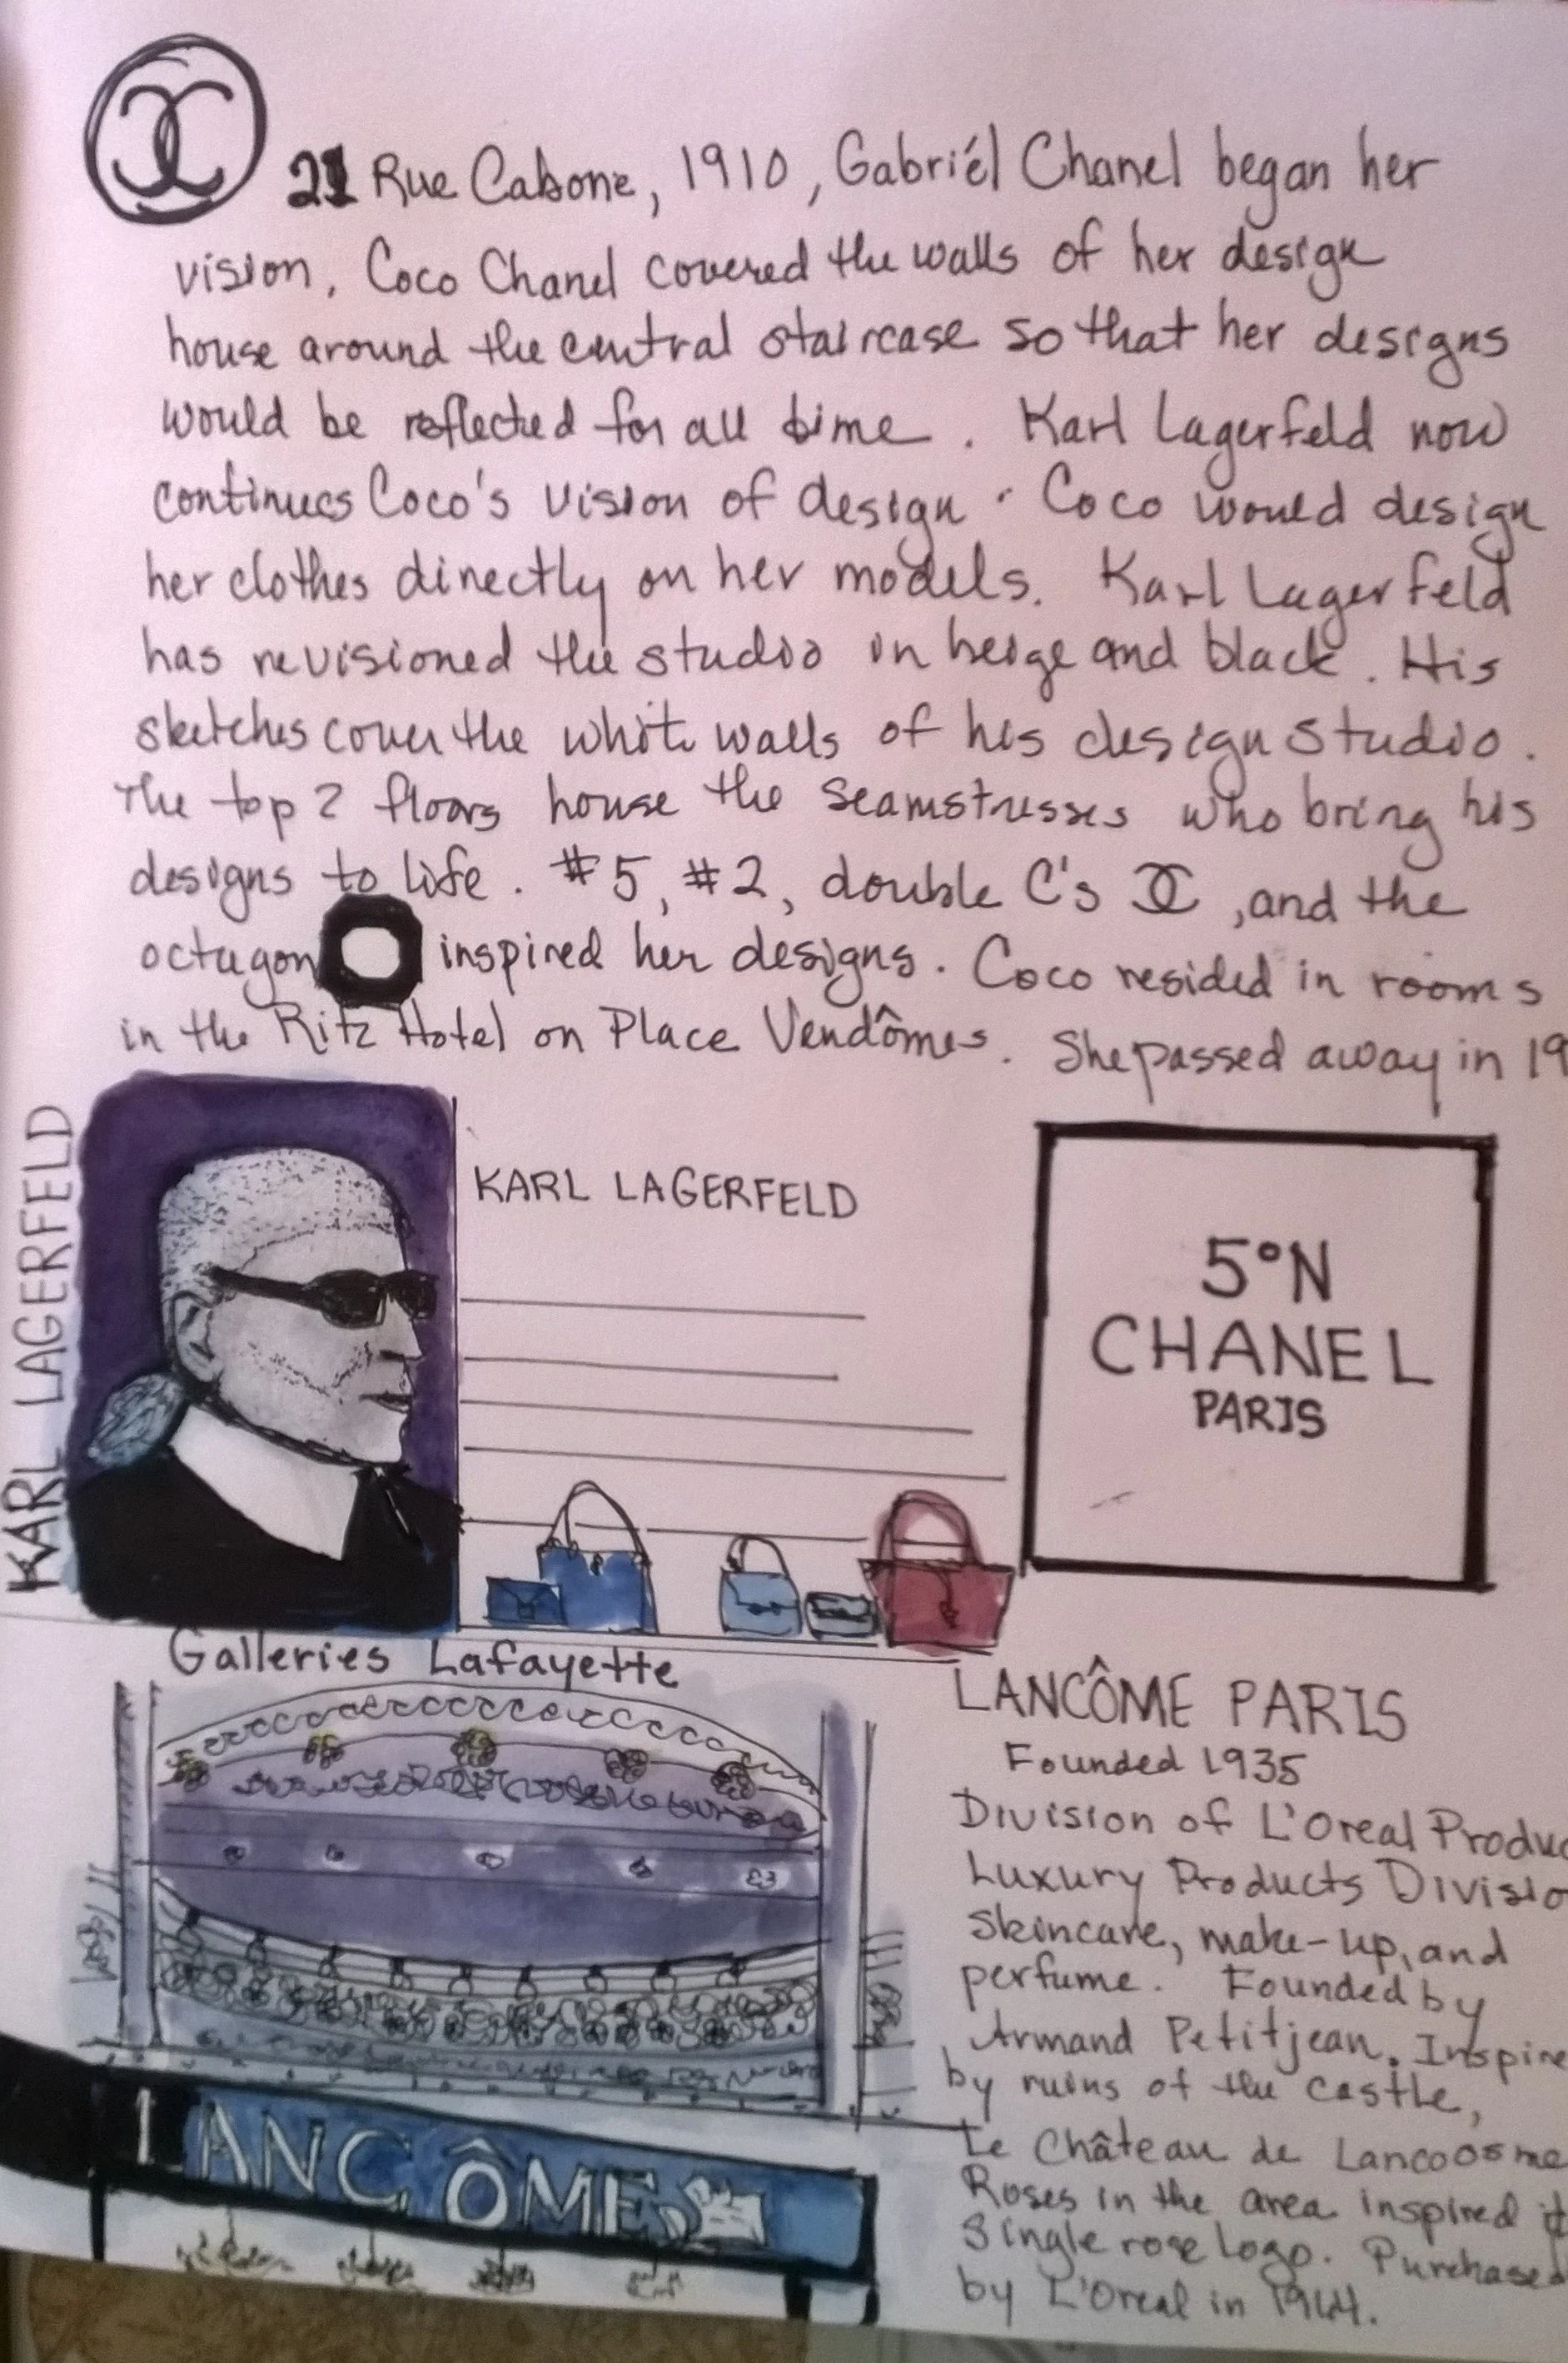 21 Rue Cabone, 1910, Gabriél Chanel began her
vision. Coco Chanel covered the walls of her design
house around the central staircase so that her designs
would be reflected for all time. Karl Lagerfeld now
continues Coco's vision of design. Coco would design
her clothes directly on her models. Karl Lagerfeld
has revisioned the studio in beige and black. His
sketches cover the white walls of his design studio.
The top 2 floors house the seamstresses who bring his
designs to life. #5, #2, double C's CC, and the
octagon inspired her designs. Coco resided in rooms
in the Ritz Hotel on Place Vendômes. She passed away in 19
KARL LAGERFELD
KARL LAGERFELD
5°N
CHANEL
PARIS
Galleries Lafayette
LANCÔME PARIS
Founded 1935
Division of L'Oreal Produc
Luxury Products Divisio
Skincare, make-up, and
perfume. Founded by
Armand Petitjean. Inspire
by ruins of the castle,
Le Château de Lancoosme
Roses in the area inspired it
Single rose logo. Purchased
by L'Oreal in 1964.
LANCÔME